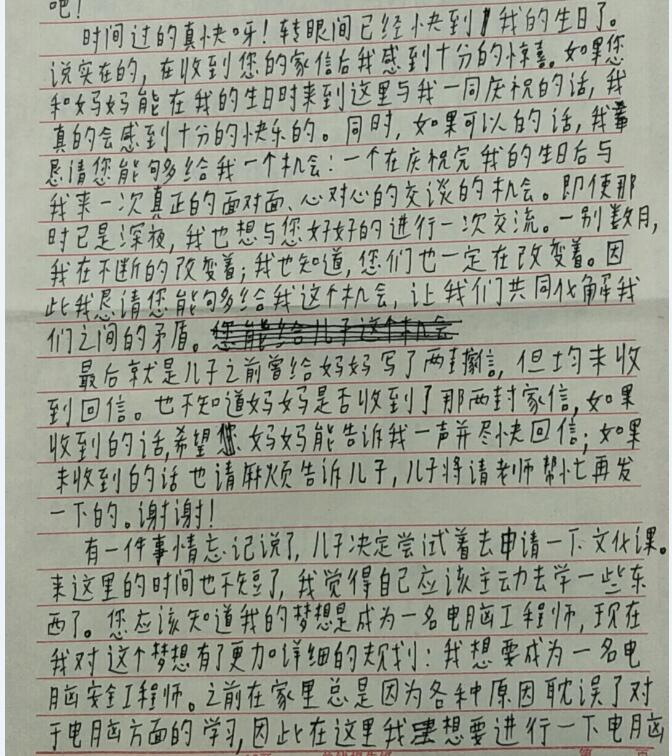 吧！
时间过的真快呀！转眼间已经快到了我的生日了。
说实在的，在收到您的家信后我感到十分的惊喜。如果您
和妈妈能在我的生日时来到这里与我一同庆祝的话，我
真的会感到十分的快乐的。同时，如果可以的话，我
恳请您能够多给我一个机会：一个在庆祝完我的生日后与
我来一次真正的面对面、心对心的交谈的机会。即使那
时已是深夜，我也想与您好好的进行一次交流。一别数月，
我在不断的改变着；我也知道，您们也一定在改变着。因
此我恳请您能够多给我这个机会，让我们共同化解我
们之间的矛盾。您能给儿子这个机会
最后就是儿子之前曾给妈妈写了两封信，但均未收
到回信。也不知道妈妈是否收到了那两封家信，如果
收到的话，希望您妈妈能告诉我一声并尽快回信；如果
未收到的话也请麻烦告诉儿子，儿子将请老师帮忙再发
一下的。谢谢！
有一件事情忘记说了，儿子决定尝试着去申请一下文化课。
来这里的时间也不短了，我觉得自己应该主动去学一些东
西了。您应该知道我的梦想是成为一名电脑工程师，现在
我对这个梦想有了更加详细的规划：我想要成为一名电
脑安全工程师。之前在家里总是因为各种原因耽误了对
于电脑方面的学习，因此在这里我想要进行一下电脑